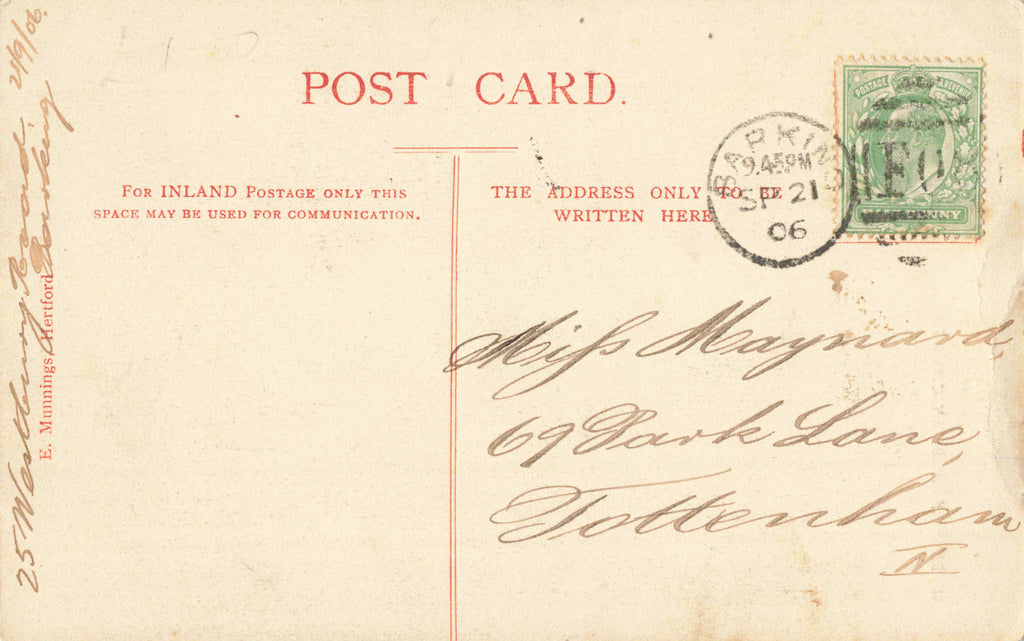 POST CARD.
FOR INLAND POSTAGE ONLY THIS
SPACE MAY BE USED FOR COMMUNICATION.
THE ADDRESS ONLY TO BE
WRITTEN HERE
BARKING
9.45PM
SP 21
06
POSTAGE & REVENUE
PENNY
Miſs Maynard,
69 Park Lane,
Tottenham
N
25 Westbury Road,
Barking
21/9/06.
E. Munnings, Hertford